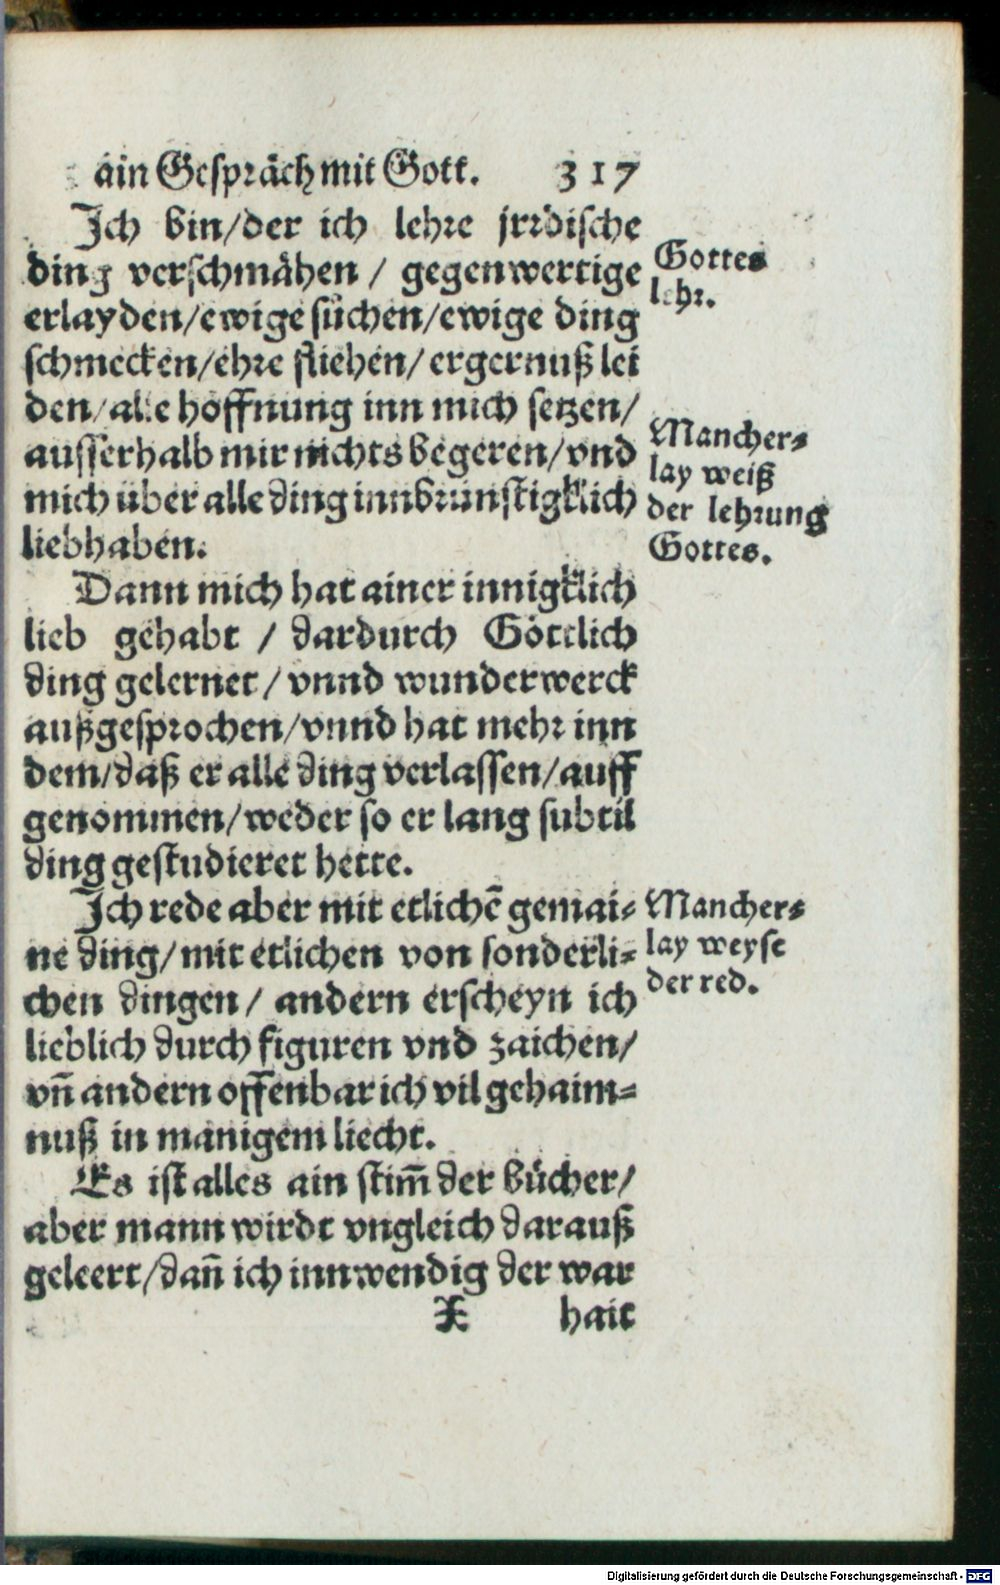 ain Gespräch mit Gott. 317
Ich bin/der ich lehre jrrdische
ding verschmähen / gegenwertige
erlayden/ewige sůchen/ewige ding
schmecken/ehre fliehen/ergernuß lei
den/alle hoffnung inn mich setzen/
ausserhalb mir nichts begeren/vnd
mich über alle ding innbrünstigklich
liebhaben.
Dann mich hat ainer innigklich
lieb gehabt / dardurch Göttlich
ding gelernet/vnnd wunderwerck
außgesprochen/vnnd hat mehr inn
dem/daß er alle ding verlassen/auff
genommen/weder so er lang subtil
ding gestudieret hette.
Ich rede aber mit etlichẽ gemai⸗
ne ding/mit etlichen von sonderli⸗
chen dingen/ andern erscheyn ich
lieblich durch figuren vnd zaichen/
vñ andern offenbar ich vil gehaim⸗
nuß in manigem liecht.
Es ist alles ain stim̃ der bücher/
aber mann wirdt vngleich darauß
geleert/dañ ich innwendig der war
X hait
Gottes
lehr.
Mancher⸗
lay weiß
der lehrung
Gottes.
Mancher⸗
lay weyse
der red.
Digitalisierung gefördert durch die Deutsche Forschungsgemeinschaft - DFG